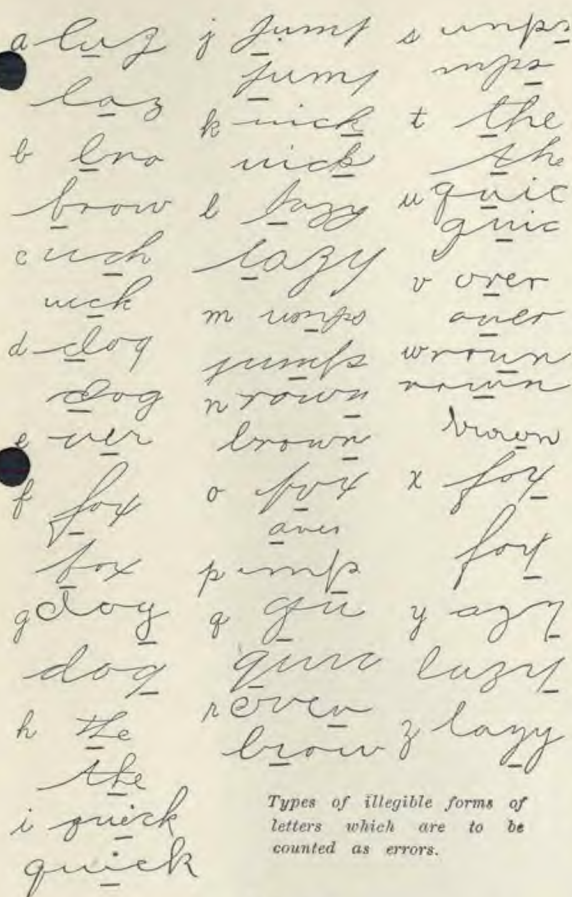 a luz
laz
b bro
brow
c uch
uick
d dog
dog
e ver
f fox
fox
g dog
dog
h the
the
i quick
quick
j jump
jump
k uick
uick
l lazy
lazy
m umps
jumps
n rown
brown
o fox
over
p ump
q qu
quic
r over
brow
s umps
mps
t the
the
u quic
quic
v over
over
w rown
rown
brown
x fox
fox
y azy
lazy
z lazy
Types of illegible forms of
letters which are to be
counted as errors.